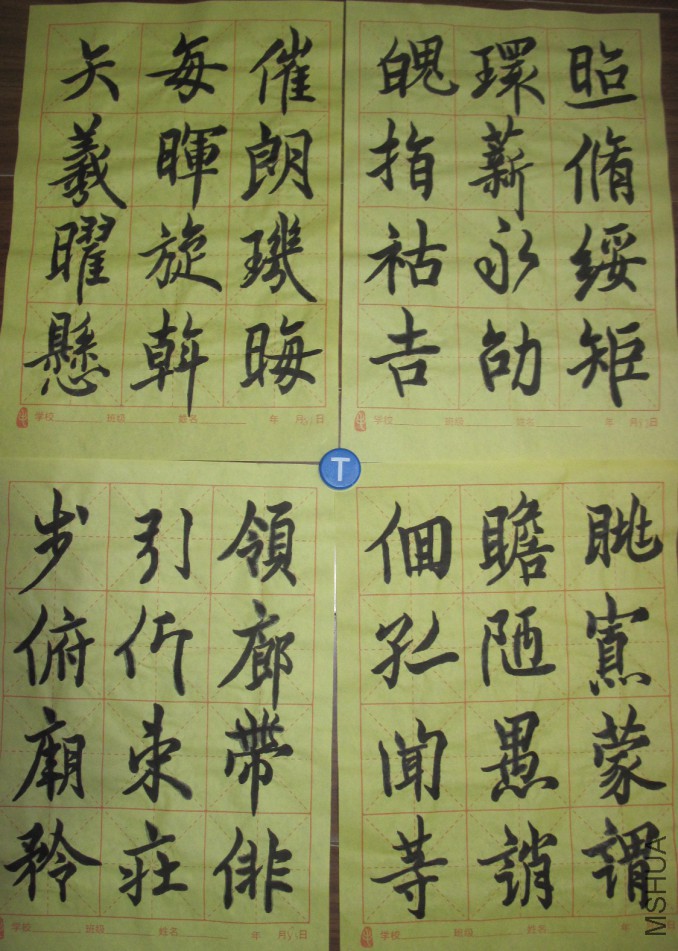 矢每催
羲暉朗
曜旋璣
懸斡晦
学校 班级 姓名 年 月 日
魄環照
指薪脩
祜永綏
吉劭矩
学校 班级 姓名 年 月 日
T
步引領
俯仰廊
廟束帶
矜莊俳
学校 班级 姓名 年 月 日
佪瞻眺
孤陋寡
聞愚蒙
等誚謂
学校 班级 姓名 年 月 日
MSHUA